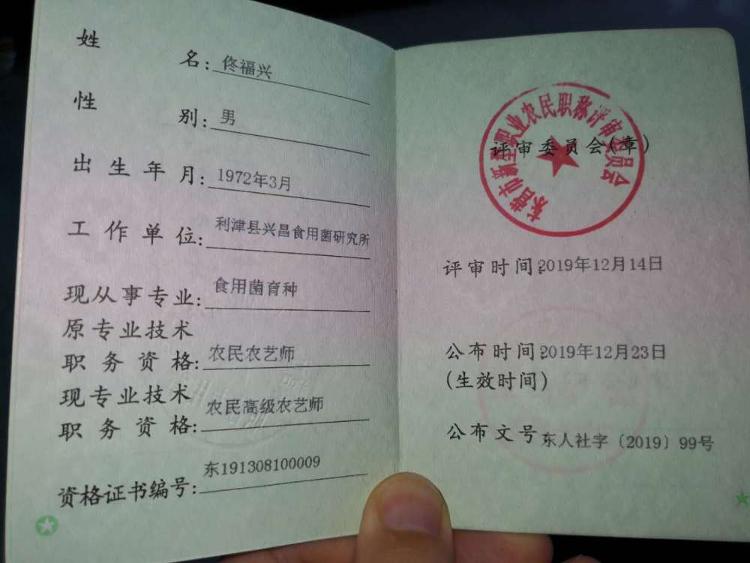 姓名：佟福兴
性别：男
出生年月：1972年3月
工作单位：利津县兴昌食用菌研究所
现从事专业：食用菌育种
原专业技术
职务资格：农民农艺师
现专业技术
职务资格：农民高级农艺师
资格证书编号：东191308100009
东营市新型职业农民职称评审委员会
评审委员会(章)
评审时间：2019年12月14日
公布时间：2019年12月23日
(生效时间)
公布文号 东人社字〔2019〕99号